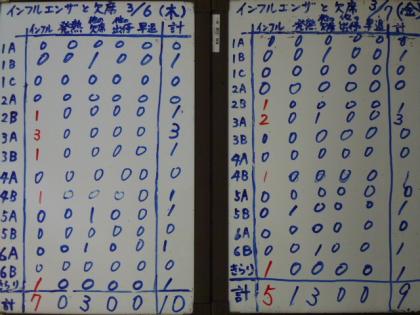 インフルエンザと欠席 3/6(木)
インフル 発熱 他の欠席 他の出停 早退 計
1A 0 0 0 0 0 0
1B 0 0 1 0 0 1
1C 0 0 0 0 0 0
2A 0 0 0 0 0 0
2B 1 0 0 0 0 1
3A 3 0 0 0 0 3
3B 1 0 0 0 0 1
4A 0 0 0 0 0 0
4B 1 0 0 0 0 1
5A 0 0 1 0 0 1
5B 0 0 0 0 0 0
6A 0 0 1 0 0 1
6B 0 0 0 0 0 0
きらり 1 0 0 0 0 1
計 7 0 3 0 0 10
インフルエンザと欠席 3/7(金)
インフル 発熱 他の欠席 他の出停 早退 計
1A 0 0 0 0 0 0
1B 0 0 1 0 0 1
1C 0 0 0 0 0 0
2A 0 0 0 0 0 0
2B 1 0 0 0 0 1
3A 2 0 1 0 0 3
3B 0 0 0 0 0 0
4A 0 0 0 0 0 0
4B 1 0 0 0 0 1
5A 0 1 0 0 0 1
5B 0 0 0 0 0 0
6A 0 0 1 0 0 1
6B 0 0 0 0 0 0
きらり 1 0 0 0 0 1
計 5 1 3 0 0 9